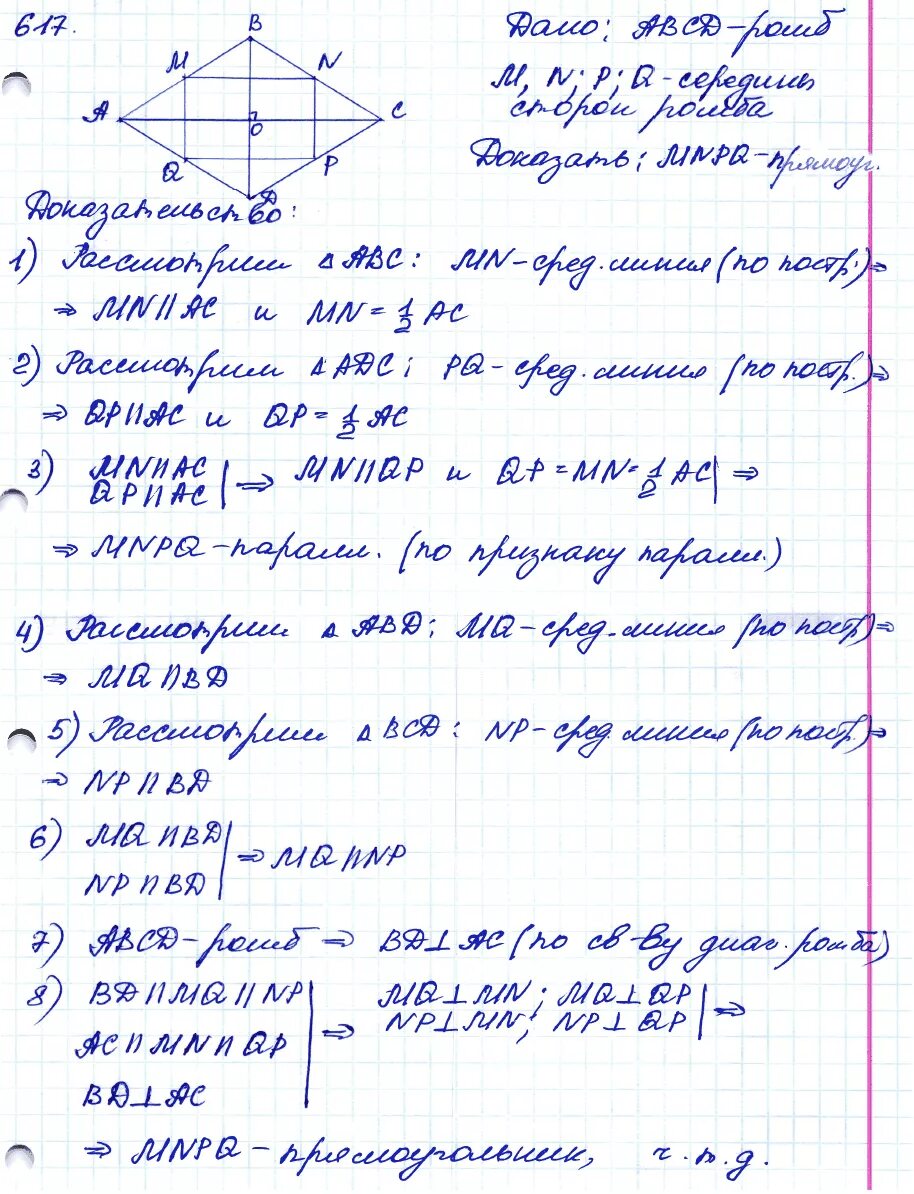 617.
B
M
N
A
O
C
Q
P
D
Дано: ABCD-ромб
M, N; P; Q-середины
сторон ромба
Доказать: MNPQ-прямоуг.
Доказательство:
1) Рассмотрим △ABC: MN-сред. линия (по постр.) ⇒
⇒ MN||AC и MN = 1/2 AC
2) Рассмотрим △ADC: PQ-сред. линия (по постр.) ⇒
⇒ QP||AC и QP = 1/2 AC
3) MN||AC
QP||AC | ⇒ MN||QP и QP = MN = 1/2 AC | ⇒
⇒ MNPQ-паралл. (по признаку паралл.)
4) Рассмотрим △ABD: MQ-сред. линия (по постр) ⇒
⇒ MQ||BD
5) Рассмотрим △BCD: NP-сред. линия (по постр.) ⇒
⇒ NP||BD
6) MQ||BD
NP||BD | ⇒ MQ||NP
7) ABCD-ромб ⇒ BD⊥AC (по св-ву диаг. ромба)
8) BD||MQ||NP
AC||MN||QP
BD⊥AC
⇒ MQ⊥MN; MQ⊥QP
NP⊥MN; NP⊥QP | ⇒
⇒ MNPQ-прямоугольник, ч.т.д.